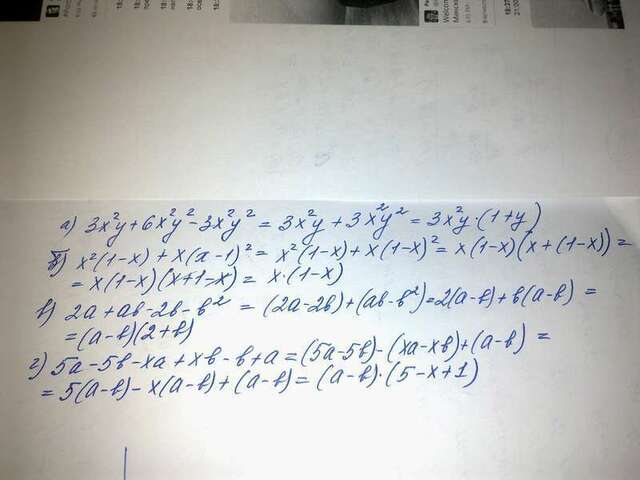 Welcom
Минсков
18:27
21:00
а) 3x²y+6x²y²-3x²y² = 3x²y+3x²y² = 3x²y·(1+y)
б) x²(1-x)+x(x-1)² = x²(1-x)+x(1-x)² = x(1-x)(x+(1-x)) =
= x(1-x)(x+1-x) = x·(1-x)
в) 2a+ab-2b-b² = (2a-2b)+(ab-b²)=2(a-b)+b(a-b) =
=(a-b)(2+b)
г) 5a-5b-xa+xb-b+a=(5a-5b)-(xa-xb)+(a-b) =
= 5(a-b)-x(a-b)+(a-b)= (a-b)·(5-x+1)